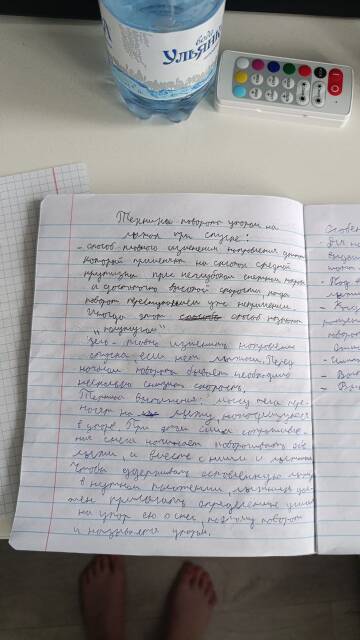 вода
Ульянка
Техника поворота упором на
лыжах при спуске:
- способ плавного изменения направления движения
который применяют на склонах средней
крутизны при неглубоком снежном покрове
и достаточно высокой скорости, когда
поворот переступанием уже неприменим.
Иногда этот способ называют
"полуплугом"
Цель - плавно изменить направление
спуска, если нет лыжни. Перед
началом поворота бывает необходимо
несколько снизить скорость.
Техника выполнения: массу тела пере-
носят на лыжу, находящуюся
в упоре. При этом сила сопротивле-
ния снега начинает поворачивать обе
лыжи, и вместе с ними и лыжника
Чтобы удерживать поставленную лыжу
в нужном положении, лыжник дол-
жен прилагать определенные усилия
на упор ею о снег, поэтому поворот
и называется упором.